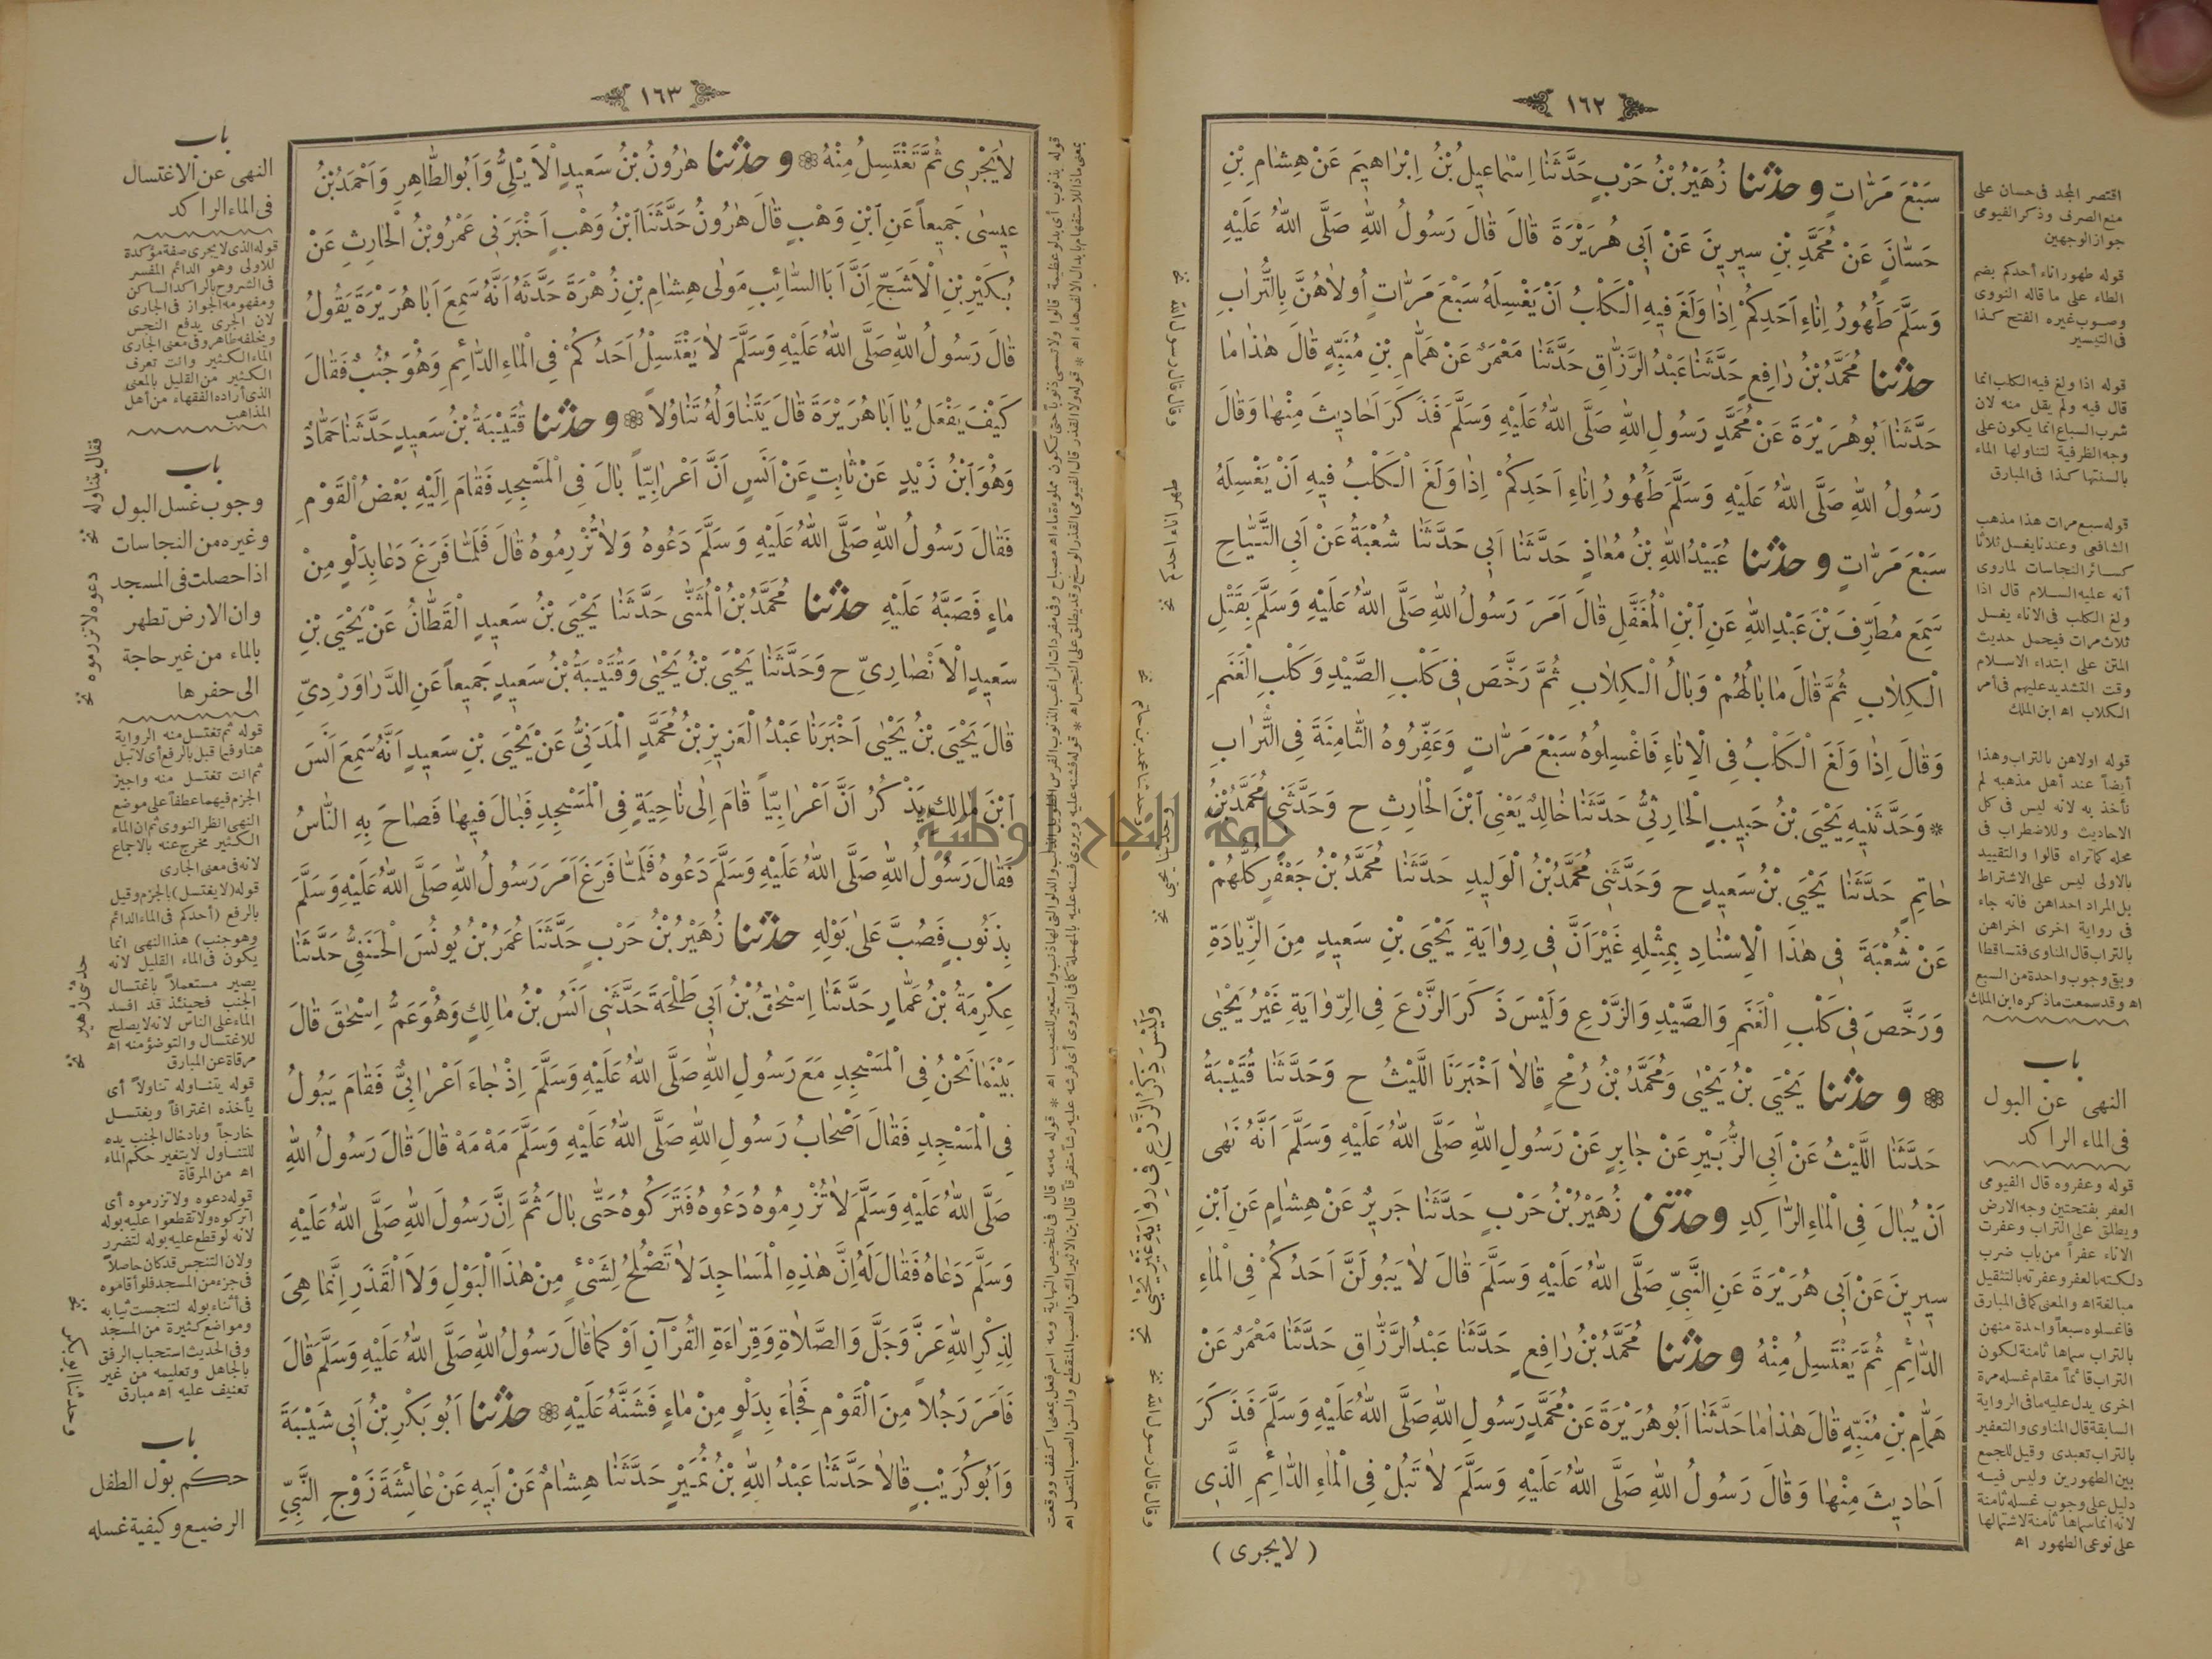 ١٦٢
سَبْعَ مَرَّاتٍ وحدثنا زُهَيْرُ بْنُ حَرْبٍ حَدَّثَنَا اِسْمَاعِيلُ بْنُ اِبْرَاهِيمَ عَنْ هِشَامِ بْنِ
حَسَّانَ عَنْ مُحَمَّدِ بْنِ سِيرِينَ عَنْ اَبِي هُرَيْرَةَ قَالَ قَالَ رَسُولُ اللهِ صَلَّى اللهُ عَلَيْهِ
وَسَلَّمَ طَهُورُ اِنَاءِ اَحَدِكُمْ اِذَا وَلَغَ فِيهِ الْكَلْبُ اَنْ يَغْسِلَهُ سَبْعَ مَرَّاتٍ اُولَاهُنَّ بِالتُّرَابِ
حدثنا مُحَمَّدُ بْنُ رَافِعٍ حَدَّثَنَا عَبْدُ الرَّزَّاقِ حَدَّثَنَا مَعْمَرٌ عَنْ هَمَّامِ بْنِ مُنَبِّهٍ قَالَ هٰذَا مَا
حَدَّثَنَا اَبُو هُرَيْرَةَ عَنْ مُحَمَّدٍ رَسُولِ اللهِ صَلَّى اللهُ عَلَيْهِ وَسَلَّمَ فَذَكَرَ اَحَادِيثَ مِنْهَا وَقَالَ
رَسُولُ اللهِ صَلَّى اللهُ عَلَيْهِ وَسَلَّمَ طَهُورُ اِنَاءِ اَحَدِكُمْ اِذَا وَلَغَ الْكَلْبُ فِيهِ اَنْ يَغْسِلَهُ
سَبْعَ مَرَّاتٍ وحدثنا عُبَيْدُ اللهِ بْنُ مُعَاذٍ حَدَّثَنَا اَبِي حَدَّثَنَا شُعْبَةُ عَنْ اَبِي التَّيَّاحِ
سَمِعَ مُطَرِّفَ بْنَ عَبْدِ اللهِ عَنِ ابْنِ الْمُغَفَّلِ قَالَ اَمَرَ رَسُولُ اللهِ صَلَّى اللهُ عَلَيْهِ وَسَلَّمَ بِقَتْلِ
الْكِلَابِ ثُمَّ قَالَ مَا بَالُهُمْ وَبَالُ الْكِلَابِ ثُمَّ رَخَّصَ فِي كَلْبِ الصَّيْدِ وَكَلْبِ الْغَنَمِ
وَقَالَ اِذَا وَلَغَ الْكَلْبُ فِي الْاِنَاءِ فَاغْسِلُوهُ سَبْعَ مَرَّاتٍ وَعَفِّرُوهُ الثَّامِنَةَ فِي التُّرَابِ
* وَحَدَّثَنِيهِ يَحْيَى بْنُ حَبِيبٍ الْحَارِثِيُّ حَدَّثَنَا خَالِدٌ يَعْنِي ابْنَ الْحَارِثِ ح وَحَدَّثَنِي مُحَمَّدُ بْنُ
حَاتِمٍ حَدَّثَنَا يَحْيَى بْنُ سَعِيدٍ ح وَحَدَّثَنِي مُحَمَّدُ بْنُ الْوَلِيدِ حَدَّثَنَا مُحَمَّدُ بْنُ جَعْفَرٍ كُلُّهُمْ
عَنْ شُعْبَةَ فِي هٰذَا الْاِسْنَادِ بِمِثْلِهِ غَيْرَ اَنَّ فِي رِوَايَةِ يَحْيَى بْنِ سَعِيدٍ مِنَ الزِّيَادَةِ
وَرَخَّصَ فِي كَلْبِ الْغَنَمِ وَالصَّيْدِ وَالزَّرْعِ وَلَيْسَ ذَكَرَ الزَّرْعَ فِي الرِّوَايَةِ غَيْرُ يَحْيٰى
وحدثنا يَحْيَى بْنُ يَحْيٰى وَمُحَمَّدُ بْنُ رُمْحٍ قَالَا اَخْبَرَنَا اللَّيْثُ ح وَحَدَّثَنَا قُتَيْبَةُ
حَدَّثَنَا اللَّيْثُ عَنْ اَبِي الزُّبَيْرِ عَنْ جَابِرٍ عَنْ رَسُولِ اللهِ صَلَّى اللهُ عَلَيْهِ وَسَلَّمَ اَنَّهُ نَهٰى
اَنْ يُبَالَ فِي الْمَاءِ الرَّاكِدِ وحدثنى زُهَيْرُ بْنُ حَرْبٍ حَدَّثَنَا جَرِيرٌ عَنْ هِشَامٍ عَنِ ابْنِ
سِيرِينَ عَنْ اَبِي هُرَيْرَةَ عَنِ النَّبِيِّ صَلَّى اللهُ عَلَيْهِ وَسَلَّمَ قَالَ لَا يَبُولَنَّ اَحَدُكُمْ فِي الْمَاءِ
الدَّائِمِ ثُمَّ يَغْتَسِلُ مِنْهُ وحدثنا مُحَمَّدُ بْنُ رَافِعٍ حَدَّثَنَا عَبْدُ الرَّزَّاقِ حَدَّثَنَا مَعْمَرٌ عَنْ
هَمَّامِ بْنِ مُنَبِّهٍ قَالَ هٰذَا مَا حَدَّثَنَا اَبُو هُرَيْرَةَ عَنْ مُحَمَّدٍ رَسُولِ اللهِ صَلَّى اللهُ عَلَيْهِ وَسَلَّمَ فَذَكَرَ
اَحَادِيثَ مِنْهَا وَقَالَ رَسُولُ اللهِ صَلَّى اللهُ عَلَيْهِ وَسَلَّمَ لَا تَبُلْ فِي الْمَاءِ الدَّائِمِ الَّذِي
( لايجرى )
اقتصر المجد فى حسان على
منع الصرف وذكر الفيومى
جواز الوجهين
قوله طهور اناء أحدكم بضم
الطاء على ما قاله النووى
وصوب غيره الفتح كذا
فى التيسير
قوله اذا ولغ فيه الكلب انما
قال فيه ولم يقل منه لان
شرب السباع انما يكون على
وجه الظرفية لتناولها الماء
بالسنتها كذا فى المبارق
قوله سبع مرات هذا مذهب
الشافعى وعندنا يغسل ثلاثا
كسائر النجاسات لما روى
أنه عليه السلام قال اذا
ولغ الكلب فى الاناء يغسل
ثلاث مرات فيحمل حديث
المتن على ابتداء الاسلام
وقت التشديد عليهم فى أمر
الكلاب اه ابن الملك
قوله اولاهن بالتراب وهذا
أيضاً عند أهل مذهبه لم
نأخذ به لانه ليس فى كل
الاحاديث وللاضطراب فى
محله كما تراه قالوا والتقييد
بالاولى ليس على الاشتراط
بل المراد احداهن فانه جاء
فى رواية اخرى اخراهن
بالتراب قال المناوى فتساقطا
وبقى وجوب واحدة من السبع
اه وقد سمعت ما ذكره ابن الملك
باب
النهى عن البول
فى الماء الراكد
قوله وعفروه قال الفيومى
العفر بفتحتين وجه الارض
ويطلق على التراب وعفرت
الاناء عفراً من باب ضرب
دلكته بالعفر وعفرته بالتثقيل
مبالغة اه والمعنى كما فى المبارق
فاغسلوه سبعاً واحدة منهن
بالتراب سماها ثامنة لكون
التراب قائماً مقام غسله مرة
اخرى يدل عليه ما فى الرواية
السابقة قال المناوى والتعفير
بالتراب تعبدى وقيل للجمع
بين الطهورين وليس فيه
دليل على وجوب غسله ثامنة
لانه انما سماها ثامنة لاشتمالها
على نوعى الطهور اه
وقال قال رسول الله
طهر اناء احدكم
وَلَيْسَ ذِكْرُ الزَّرْعِ فِي رِوَايَةِ غَيْرِ يَحْيٰى
وقال قال رسول الله
١٦٣
لَا يَجْرِي ثُمَّ تَغْتَسِلُ مِنْهُ وحدثنا هٰرُونُ بْنُ سَعِيدٍ الْاَيْلِيُّ وَاَبُو الطَّاهِرِ وَاَحْمَدُ بْنُ
عِيسٰى جَمِيعاً عَنِ ابْنِ وَهْبٍ قَالَ هٰرُونُ حَدَّثَنَا ابْنُ وَهْبٍ اَخْبَرَنِي عَمْرُو بْنُ الْحَارِثِ عَنْ
بُكَيْرِ بْنِ الْاَشَجِّ اَنَّ اَبَا السَّائِبِ مَوْلٰى هِشَامِ بْنِ زُهْرَةَ حَدَّثَهُ اَنَّهُ سَمِعَ اَبَا هُرَيْرَةَ يَقُولُ
قَالَ رَسُولُ اللهِ صَلَّى اللهُ عَلَيْهِ وَسَلَّمَ لَا يَغْتَسِلُ اَحَدُكُمْ فِي الْمَاءِ الدَّائِمِ وَهُوَ جُنُبٌ فَقَالَ
كَيْفَ يَفْعَلُ يَا اَبَا هُرَيْرَةَ قَالَ يَتَنَاوَلُهُ تَنَاوُلاً وحدثنا قُتَيْبَةُ بْنُ سَعِيدٍ حَدَّثَنَا حَمَّادٌ
وَهُوَ ابْنُ زَيْدٍ عَنْ ثَابِتٍ عَنْ اَنَسٍ اَنَّ اَعْرَابِيّاً بَالَ فِي الْمَسْجِدِ فَقَامَ اِلَيْهِ بَعْضُ الْقَوْمِ
فَقَالَ رَسُولُ اللهِ صَلَّى اللهُ عَلَيْهِ وَسَلَّمَ دَعُوهُ وَلَا تُزْرِمُوهُ قَالَ فَلَمَّا فَرَغَ دَعَا بِدَلْوٍ مِنْ
مَاءٍ فَصَبَّهُ عَلَيْهِ حدثنا مُحَمَّدُ بْنُ الْمُثَنّٰى حَدَّثَنَا يَحْيَى بْنُ سَعِيدٍ الْقَطَّانُ عَنْ يَحْيَى بْنِ
سَعِيدٍ الْاَنْصَارِيِّ ح وَحَدَّثَنَا يَحْيَى بْنُ يَحْيٰى وَقُتَيْبَةُ بْنُ سَعِيدٍ جَمِيعاً عَنِ الدَّرَاوَرْدِيِّ
قَالَ يَحْيَى بْنُ يَحْيٰى اَخْبَرَنَا عَبْدُ الْعَزِيزِ بْنُ مُحَمَّدٍ الْمَدَنِيُّ عَنْ يَحْيَى بْنِ سَعِيدٍ اَنَّهُ سَمِعَ اَنَسَ
ابْنَ مَالِكٍ يَذْكُرُ اَنَّ اَعْرَابِيّاً قَامَ اِلٰى نَاحِيَةٍ فِي الْمَسْجِدِ فَبَالَ فِيهَا فَصَاحَ بِهِ النَّاسُ
فَقَالَ رَسُولُ اللهِ صَلَّى اللهُ عَلَيْهِ وَسَلَّمَ دَعُوهُ فَلَمَّا فَرَغَ اَمَرَ رَسُولُ اللهِ صَلَّى اللهُ عَلَيْهِ وَسَلَّمَ
بِذَنُوبٍ فَصُبَّ عَلٰى بَوْلِهِ حدثنا زُهَيْرُ بْنُ حَرْبٍ حَدَّثَنَا عُمَرُ بْنُ يُونُسَ الْحَنَفِيُّ حَدَّثَنَا
عِكْرِمَةُ بْنُ عَمَّارٍ حَدَّثَنَا اِسْحٰقُ بْنُ اَبِي طَلْحَةَ حَدَّثَنِي اَنَسُ بْنُ مَالِكٍ وَهُوَ عَمُّ اِسْحٰقَ قَالَ
بَيْنَمَا نَحْنُ فِي الْمَسْجِدِ مَعَ رَسُولِ اللهِ صَلَّى اللهُ عَلَيْهِ وَسَلَّمَ اِذْ جَاءَ اَعْرَابِيٌّ فَقَامَ يَبُولُ
فِي الْمَسْجِدِ فَقَالَ اَصْحَابُ رَسُولِ اللهِ صَلَّى اللهُ عَلَيْهِ وَسَلَّمَ مَهْ مَهْ قَالَ قَالَ رَسُولُ اللهِ
صَلَّى اللهُ عَلَيْهِ وَسَلَّمَ لَا تُزْرِمُوهُ دَعُوهُ فَتَرَكُوهُ حَتّٰى بَالَ ثُمَّ اِنَّ رَسُولَ اللهِ صَلَّى اللهُ عَلَيْهِ
وَسَلَّمَ دَعَاهُ فَقَالَ لَهُ اِنَّ هٰذِهِ الْمَسَاجِدَ لَا تَصْلُحُ لِشَيْءٍ مِنْ هٰذَا الْبَوْلِ وَلَا الْقَذَرِ اِنَّمَا هِيَ
لِذِكْرِ اللهِ عَزَّ وَجَلَّ وَالصَّلَاةِ وَقِرَاءَةِ الْقُرْآنِ اَوْ كَمَا قَالَ رَسُولُ اللهِ صَلَّى اللهُ عَلَيْهِ وَسَلَّمَ قَالَ
فَاَمَرَ رَجُلاً مِنَ الْقَوْمِ فَجَاءَ بِدَلْوٍ مِنْ مَاءٍ فَشَنَّهُ عَلَيْهِ حدثنا اَبُو بَكْرِ بْنُ اَبِي شَيْبَةَ
وَاَبُو كُرَيْبٍ قَالَا حَدَّثَنَا عَبْدُ اللهِ بْنُ نُمَيْرٍ حَدَّثَنَا هِشَامٌ عَنْ اَبِيهِ عَنْ عَائِشَةَ زَوْجِ النَّبِيِّ
باب
النهى عن الاغتسال
فى الماء الراكد
قوله الذى لا يجرى صفة مؤكدة
للاولى وهو الدائم المفسر
فى الشروح بالراكد الساكن
ومفهومه الجواز فى الجارى
لان الجرى يدفع النجس
ويخلفه طاهر وفى معنى الجارى
الماء الكثير وانت تعرف
الكثير من القليل بالمعنى
الذى أراده الفقهاء من أهل
المذاهب
باب
وجوب غسل البول
وغيره من النجاسات
اذا حصلت فى المسجد
وان الارض تطهر
بالماء من غير حاجة
الى حفرها
قوله ثم تغتسل منه الرواية
هنا وفيما قبل بالرفع أى لا تبل
ثم انت تغتسل منه واجيز
الجزم فيهما عطفاً على موضع
النهى انظر النووى ثم ان الماء
الكثير مخرج عنه بالاجماع
لانه فى معنى الجارى
قوله (لا يغتسل) بالجزم وقيل
بالرفع (أحدكم فى الماء الدائم
وهو جنب) هذا النهى انما
يكون فى الماء القليل لانه
يصير مستعملاً باغتسال
الجنب فحينئذ قد افسد
الماء على الناس لانه لا يصلح
للاغتسال والتوضؤ منه اه
مرقاة عن المبارق
قوله يتناوله تناولاً أى
يأخذه اغترافاً ويغتسل
خارجاً وبادخال الجنب يده
للتناول لا يتغير حكم الماء
اه من المرقاة
قوله دعوه ولا تزرموه أى
اتركوه ولا تقطعوا عليه بوله
لانه لو قطع عليه بوله لتضرر
ولان التنجس قد كان حاصلاً
فى جزء من المسجد فلو أقاموه
فى أثناء بوله لتنجست ثيابه
ومواضع كثيرة من المسجد
وفى الحديث استحباب الرفق
بالجاهل وتعليمه من غير
تعنيف عليه اه مبارق
باب
حكم بول الطفل
الرضيع وكيفية غسله
فقال يتناوله
دعوه لا تزرموه
حدثنى زهير
وحدثنا ابو بكر
جامعة النجاح الوطنية